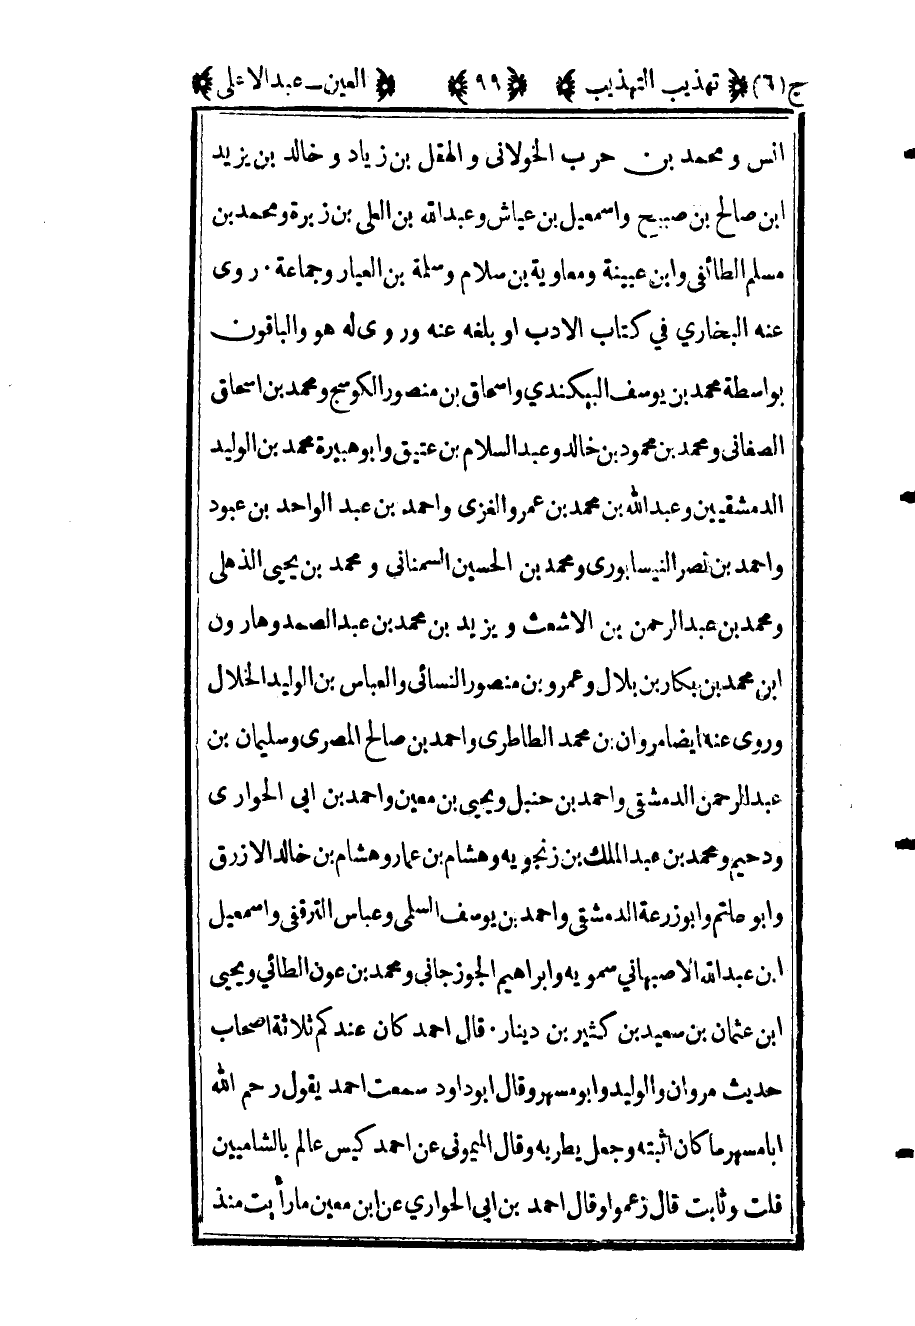 ج(٦) ﴿ تهذيب التهذيب ﴾ ﴿ ٩٩ ﴾ ﴿ العين ـ عبد الاعلى ﴾
انس و محمد بن حرب الخولانى و الهقل بن زياد و خالد بن يزيد
ابن صالح بن صبيح واسمعيل بن عياش وعبدالله بن العلى بن زبرة ومحمد بن
مسلم الطائفى وابن عيينة ومعاوية بن سلام وسلمة بن العيار وجماعة · روى
عنه البخاري في كتاب الادب او بلغه عنه وروى له هو والباقون
بواسطة محمد بن يوسف البيكندي واسحاق بن منصور الكوسج ومحمد بن اسحاق
الصغانى ومحمد بن محمود بن خالد وعبد السلام بن عتيق وابو هبيرة محمد بن الوليد
الدمشقيين وعبد الله بن محمد بن عمرو الغزى واحمد بن عبد الواحد بن عبود
واحمد بن نصر النيسابورى ومحمد بن الحسين السمنانى و محمد بن يحيى الذهلى
ومحمد بن عبد الرحمن بن الاشعث و يزيد بن محمد بن عبد الصمد وهارون
ابن محمد بن بكار بن بلال وعمرو بن منصور النسائى والعباس بن الوليد الخلال
وروى عنه ايضا مروان بن محمد الطاطرى واحمد بن صالح المصرى وسليمان بن
عبد الرحمن الدمشقى واحمد بن حنبل ويحيى بن معين واحمد بن ابى الحوارى
ودحيم ومحمد بن عبد الملك بن زنجويه وهشام بن عمار وهشام بن خالد الازرق
وابو حاتم وابو زرعة الدمشقى واحمد بن يوسف السلمى وعباس الترقفى واسمعيل
ابن عبد الله الاصبهاني سمويه وابراهيم الجوزجانى ومحمد بن عون الطائي ويحيى
ابن عثمان بن سعيد بن كثير بن دينار · قال احمد كان عندكم ثلاثة اصحاب
حديث مروان والوليد وابو مسهر وقال ابوداود سمعت احمد يقول رحم الله
ابا مسهر ما كان اثبته وجعل يطريه وقال الميمونى عن احمد كيس عالم بالشاميين
قلت وثابت قال زعموا وقال احمد بن ابى الحواري عن ابن معين ما رأيت منذ